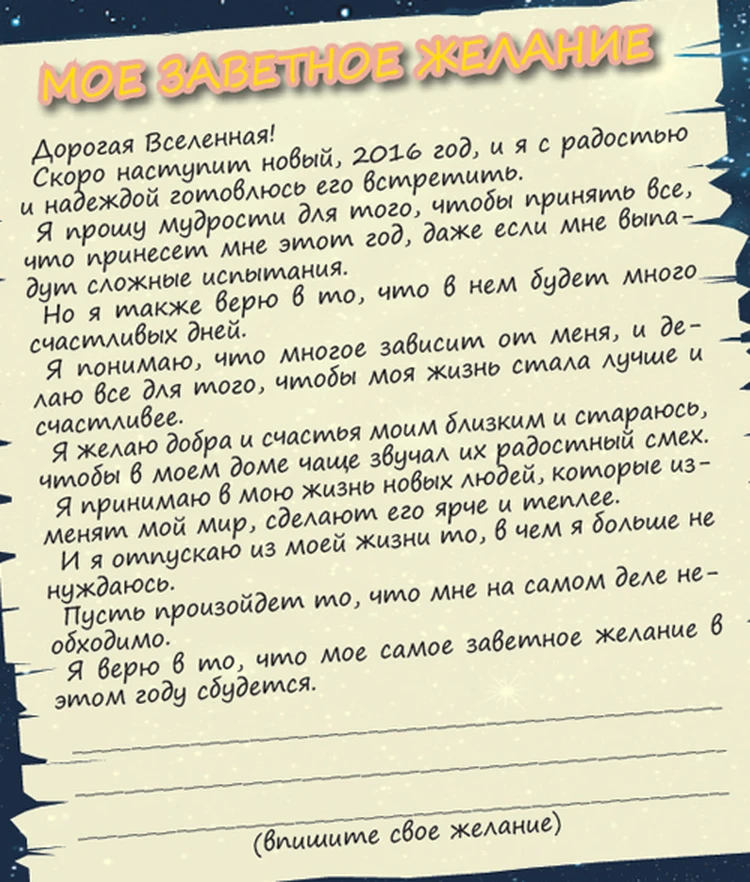 МОЕ ЗАВЕТНОЕ ЖЕЛАНИЕ
Дорогая Вселенная!
Скоро наступит новый, 2016 год, и я с радостью
и надеждой готовлюсь его встретить.
Я прошу мудрости для того, чтобы принять все,
что принесет мне этот год, даже если мне выпа-
дут сложные испытания.
Но я также верю в то, что в нем будет много
счастливых дней.
Я понимаю, что многое зависит от меня, и де-
лаю все для того, чтобы моя жизнь стала лучше и
счастливее.
Я желаю добра и счастья моим близким и стараюсь,
чтобы в моем доме чаще звучал их радостный смех.
Я принимаю в мою жизнь новых людей, которые из-
менят мой мир, сделают его ярче и теплее.
И я отпускаю из моей жизни то, в чем я больше не
нуждаюсь.
Пусть произойдет то, что мне на самом деле не-
обходимо.
Я верю в то, что мое самое заветное желание в
этом году сбудется.
(впишите свое желание)